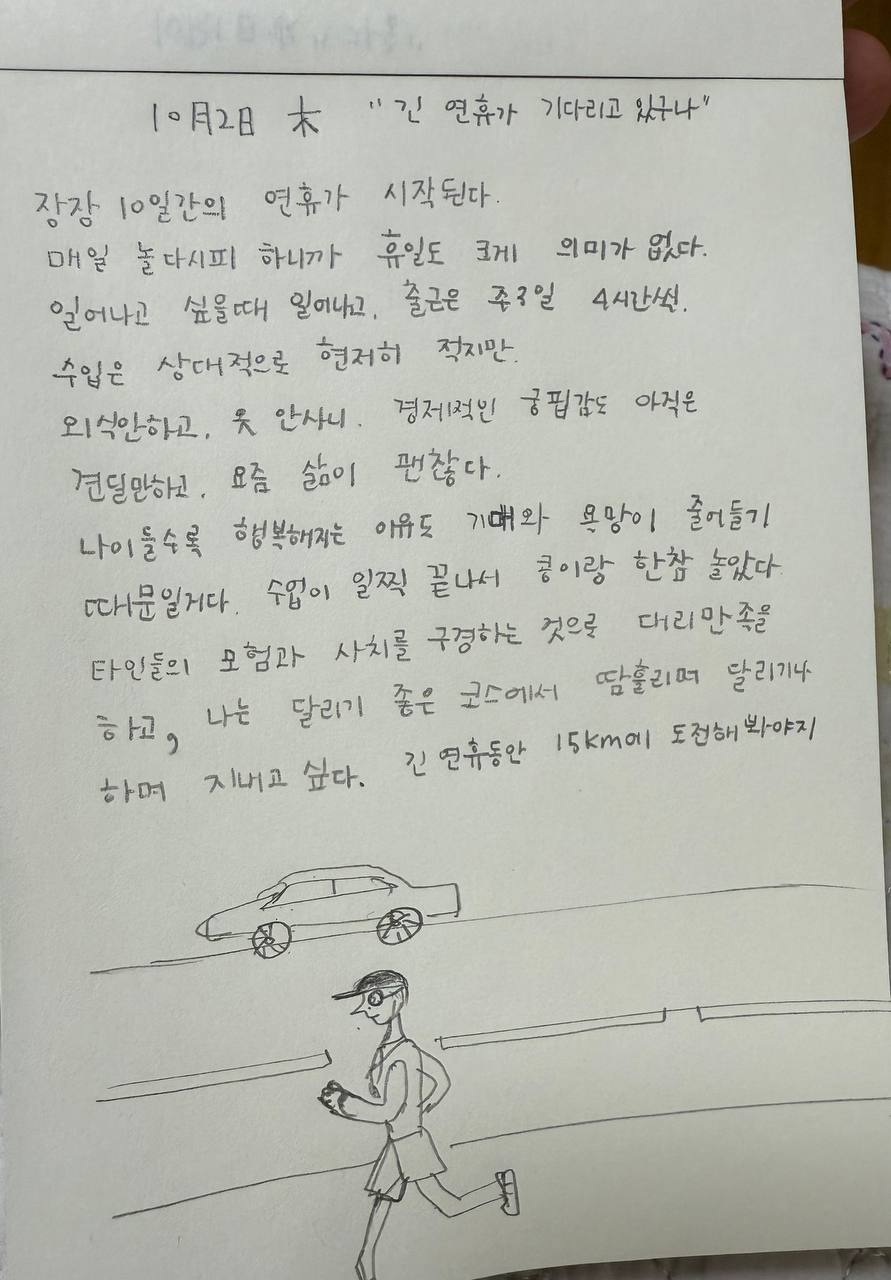 10月2日 木 "긴 연휴가 기다리고 있구나"
장장 10일간의 연휴가 시작된다.
매일 놀다시피 하니까 휴일도 크게 의미가 없다.
일어나고 싶을때 일어나고, 출근은 주3일 4시간씩.
수입은 상대적으로 현저히 적지만.
외식안하고, 옷 안사니. 경제적인 궁핍감도 아직은
견딜만하고, 요즘 삶이 괜찮다.
나이들수록 행복해지는 이유도 기대와 욕망이 줄어들기
때문일거다. 수업이 일찍 끝나서 콩이랑 한참 놀았다
타인들의 모험과 사치를 구경하는 것으로 대리만족을
하고, 나는 달리기 좋은 코스에서 땀흘리며 달리기나
하며 지내고 싶다. 긴 연휴동안 15km에 도전해봐야지